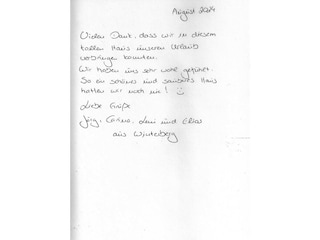 August 2024
Vielen Dank, dass wir in diesem
tollen Haus unseren Urlaub
verbringen konnten.
Wir haben uns sehr wohl gefühlt.
So ein schönes und sauberes Haus
hatten wir noch nie! ☺
Liebe Grüße
Jörg, Carina, Leni und Elias
aus Winterberg